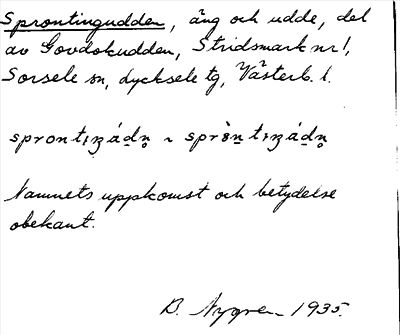 Sprontingudden, äng och udde, del
av Govdokudden, Stridsmark nr 1,
Sorsele sn, Lycksele tg, Västerb. l.
sprontiŋád̥n̥ ~ spròn̥tiŋád̥n̥
Namnets uppkomst och betydelse
obekant.
B. Nygren 1935.